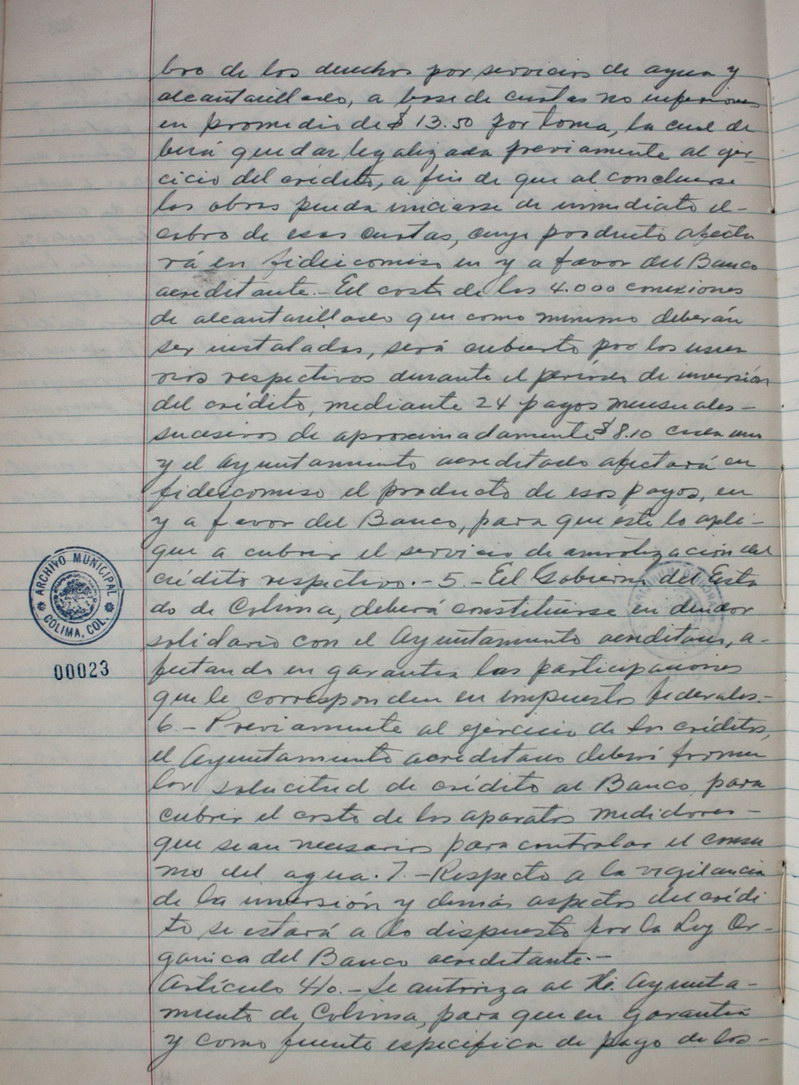 bro de los derechos por servicios de agua y
alcantarillado, a base de cuotas no inferiores
en promedio de $ 13.50 por toma, la cual de
berá quedar legalizada previamente al ejer-
cicio del crédito, a fin de que al concluirse
las obras pueda iniciarse de inmediato el-
cobro de esas cuotas, cuyo producto afecta
rá en fideicomiso en y a favor del Banco
acreditante.- El costo de las 4.000 conexiones
de alcantarillado que como mínimo deberán
ser instaladas, será cubierto por los usua
rios respectivos durante el período de inversión
del crédito, mediante 24 pagos mensuales-
sucesivos de aproximadamente $ 8.10 cada uno
y el Ayuntamiento acreditado afectará en
fideicomiso el producto de esos pagos, en
y a favor del Banco, para que este lo apli-
que a cubrir el servicio de amortización del
crédito respectivo.- 5.- El Gobierno del Esta
do de Colima, deberá constituirse en deudor
solidario con el Ayuntamiento a-
fectando en garantía las participaciones
que le corresponden en impuestos federales.-
6.- Previamente al ejercicio de los créditos,
el Ayuntamiento acreditado deberá formu
lar solicitud de crédito al Banco para
cubrir el costo de los aparatos medidores-
que sean necesarios para controlar el consu
mo del agua. 7.- Respecto a la vigilancia
de la inversión y demás aspectos del crédi
to se estará a lo dispuesto por la Ley Or-
gánica del Banco acreditante.-
Artículo 4/o.- Se autoriza al H. Ayunta-
miento de Colima, para que en garantía
y como fuente específica de pago de los-
ARCHIVO MUNICIPAL
COLIMA, COL.
00023